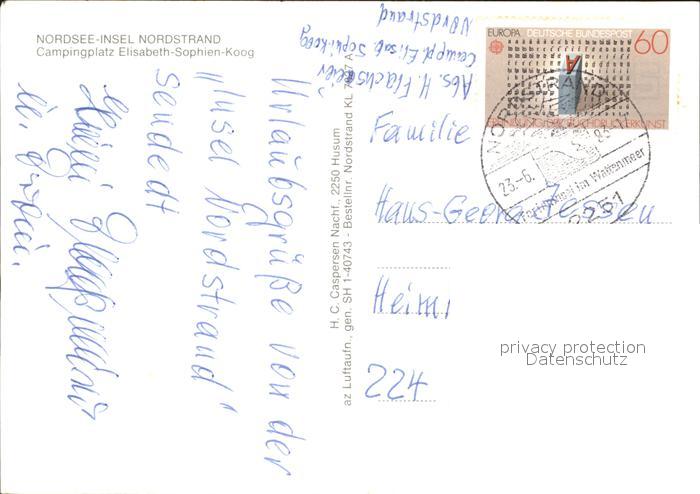 NORDSEE-INSEL NORDSTRAND
Campingplatz Elisabeth-Sophien-Koog
Urlaubsgrüße von der
"Insel Nordstrand"
sendedt
H. C. Caspersen Nachf., 2250 Husum
az Luftaufn., gen. SH 1-40743 - Bestellnr. Nordstrand KL 7
Abs. H. Flachsmeier
Campl. Elisab. Sophi-koog
Nordstrand
EUROPA DEUTSCHE BUNDESPOST
60
NORDSTRAND
23.-6. 83
im Wattenmeer
2251
Familie
Hans-Georg Jessen
Heim
224
privacy protection
Datenschutz